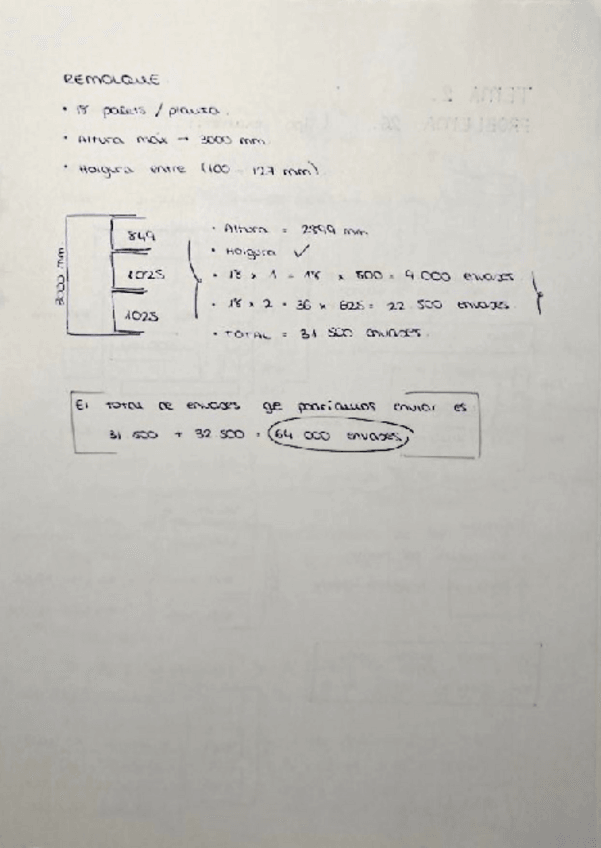 REMOLQUE
• 18 palets / planta.
• Altura máx → 3000 mm.
• Holgura entre (100 - 127 mm)
3000 mm
849
1025
1025
• Altura = 2899 mm
• Holgura ✓
• 18 x 1 = 18 x 500 = 9.000 envases
• 18 x 2 = 36 x 625 = 22.500 envases.
• TOTAL = 31.500 envases.
El TOTAL DE envases qe podríamos enviar es
31.500 + 32.500 = 64.000 envases
TEMA 2.
PROBLEMA 26.